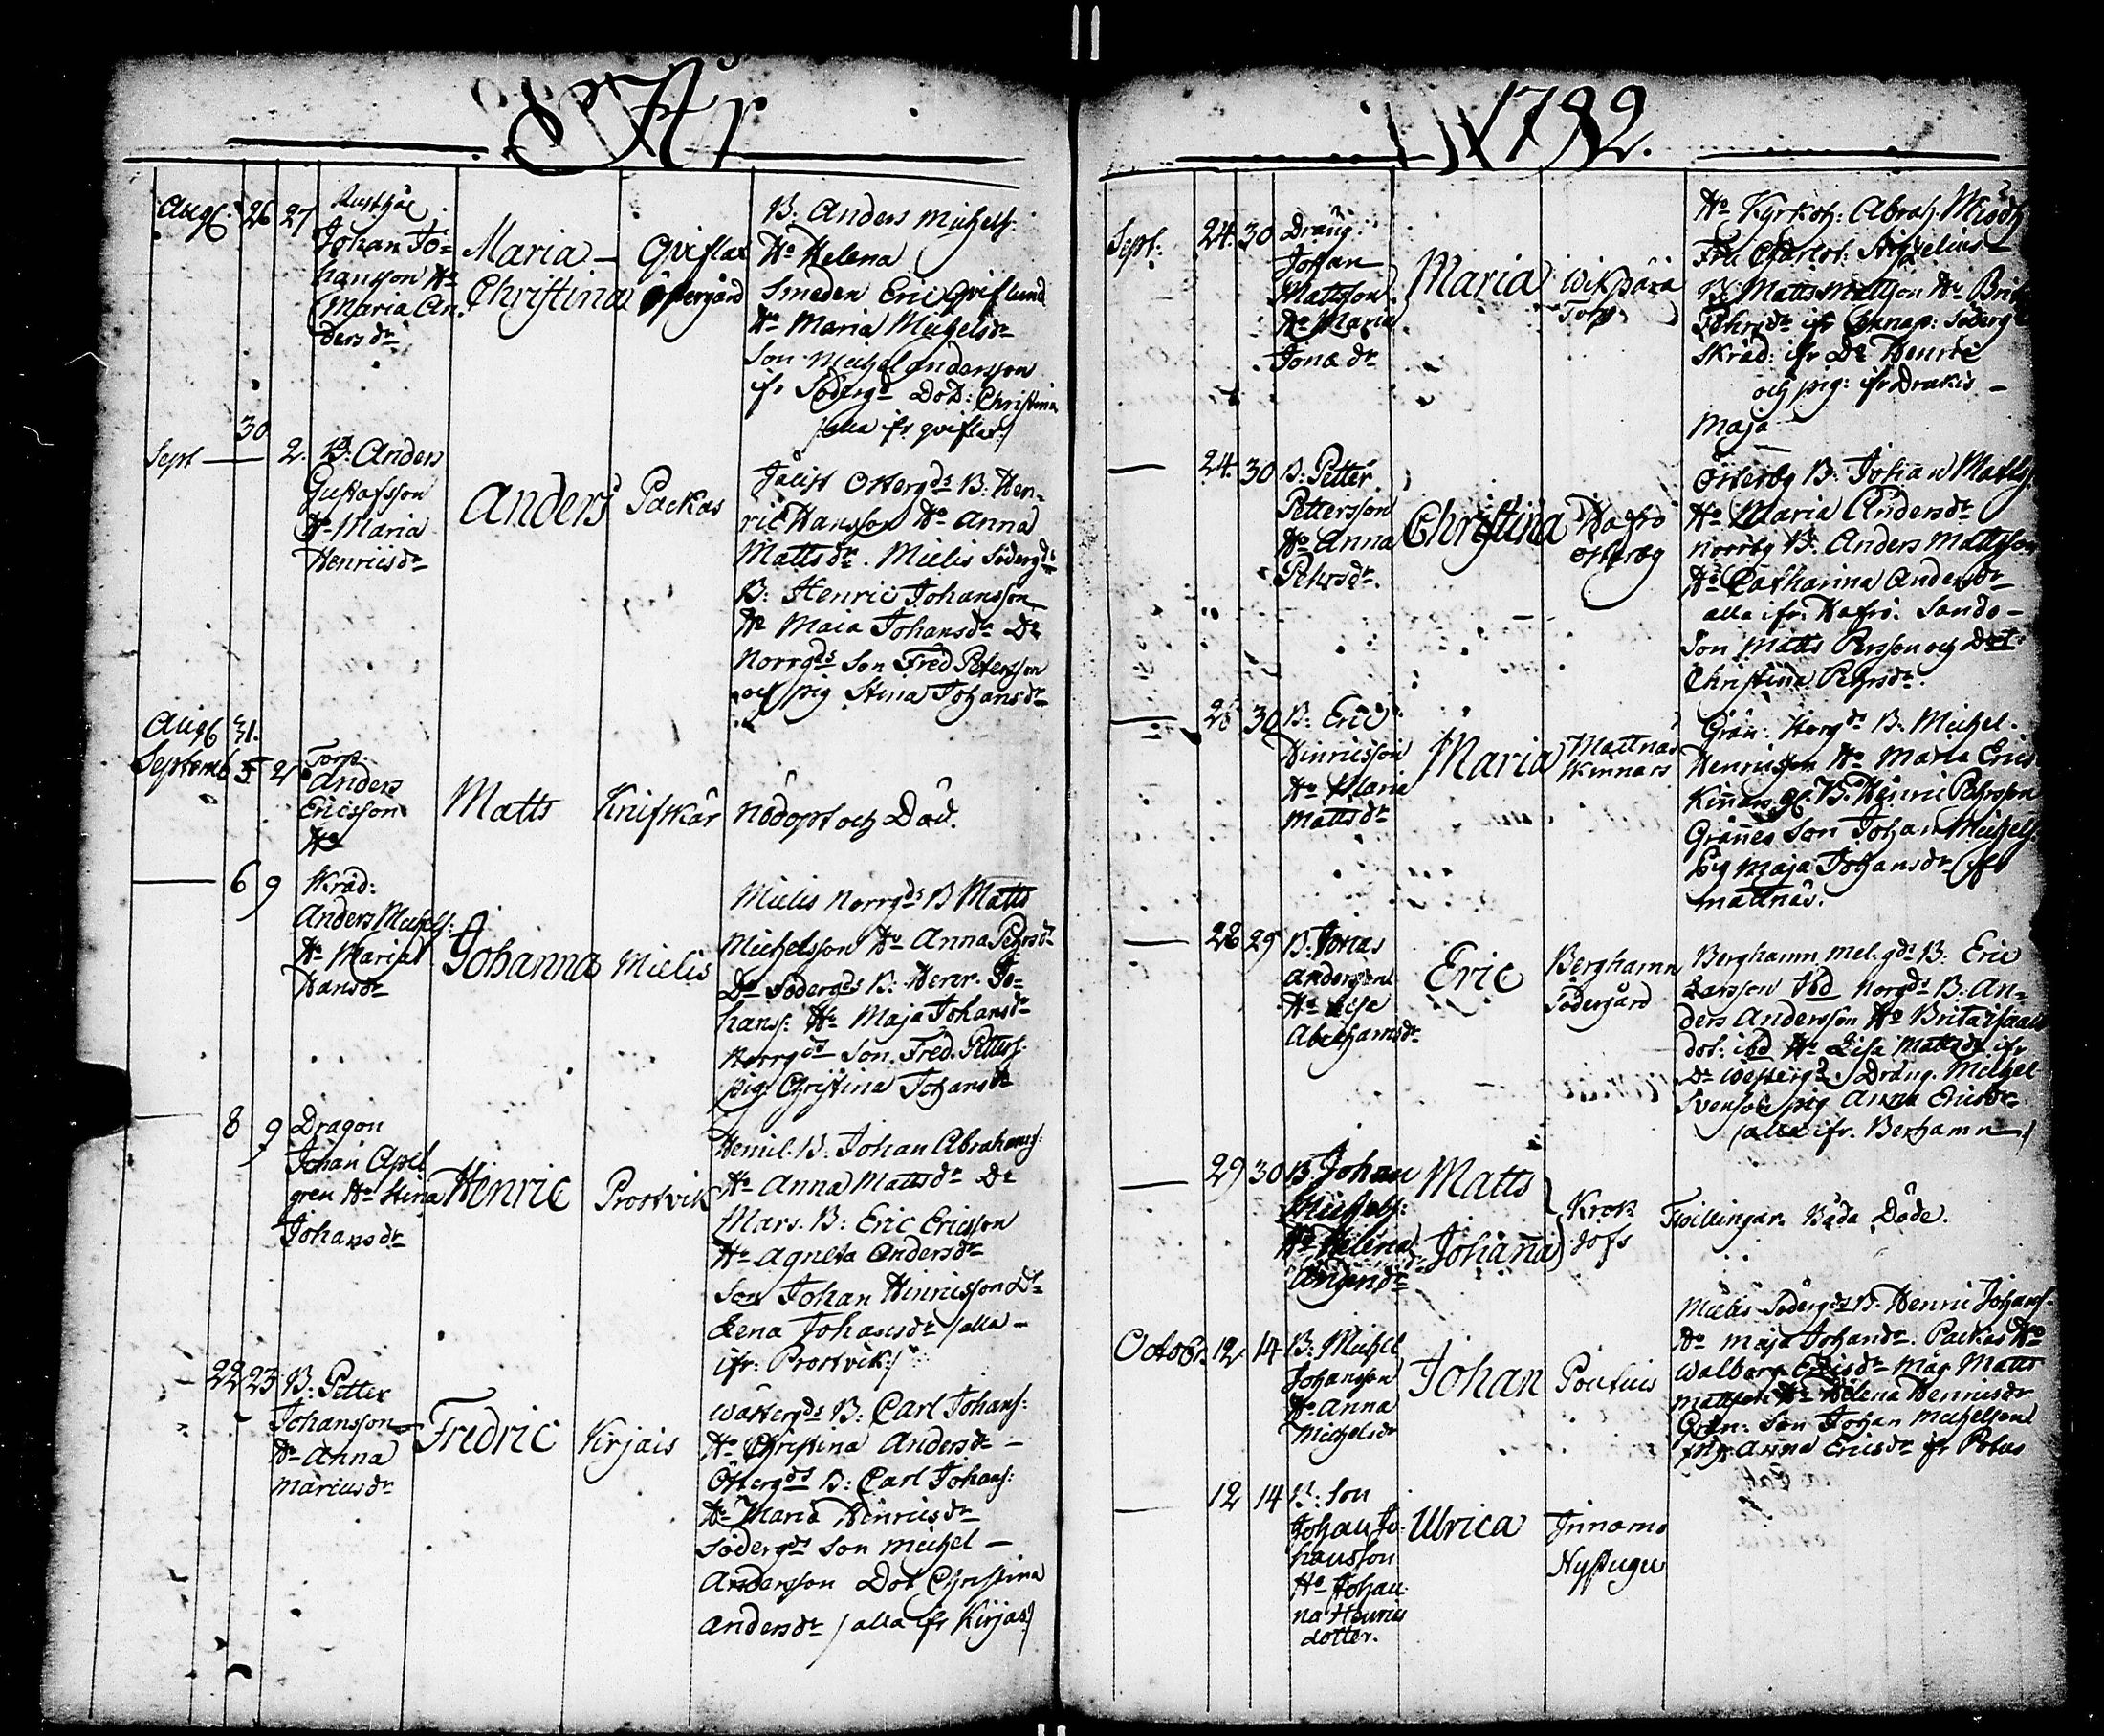 År
Aug. 26 27 Rusthål.
Johan Jo=
hansson Ho
Maria An
ders dr
Maria
Christina
Qviflax
Östergård
B. Anders Michels:
Ho Helena
Smeden Eric Qviflund
Ho Maria Michelsdr
Son Michel andersson
ifr Söderg. Dot: Christina
/alla ifr qviflax/
30
Sept — 2. B. Anders
Gustafsson
Ho Maria
Henricsdr
Anders
Packas
Östergds B: Hen=
ric Hansson Ho Anna
Mattsdr. Mielis Södergds
B: Henric Johansson
Ho Maia Johansdr Do
Norrgds Son Fred Petersson
och pig Stina Johansdr
Aug 31.
Septemb 5 2 Torp.
Anders
Ericsson
Ho
Matts
Knifskär
Nödöpt och Död.
— 6 9 Skräd:
Anders Michels:
Ho Maria
Hansdr
Johanna
Mielis
Mielis Norrgds B Matts
Michelsson Ho Anna Pehrsdr
Do Södergds B: Henr. Jo=
hanss: Ho Maja Johansdr
Norrgds Son Fred. Petters:
pig Christina Johansdr
— 8 9 Dragon
Johan Apel
gren Ho Stina
Johansdr
Henric
Prostvik
B. Johan Abrahams:
Ho Anna Mattsdr Do
Mars. B: Eric Ericsson
Ho Agneta Andersdr
Son Johan Hinricsson Do
Lena Johansdr /alla —
ifr: Prostvik/
— 22 23 B: Petter
Johansson
Ho Anna
Maricusdr
Fredric
Kirjais
Wästergds B: Carl Johans:
Ho Christina Andersdr —
Östergds B: Carl Johans:
Ho Maria Hinricsdr
Södergds Son Michel —
Andersson Dot Christina
Andersdr /alla ifr Kirjas/
1792.
Sept: 24. 30 Dräng
Johan
Mattsson
Ho Maria
Jonædr
Maria
Torp
Ho Kyrkoh: Abrah:
Matts Mattsson Ho
Skräd: ifr Do Henric
och pig: ifr Drakis —
Maja
— 24. 30 B. Petter
Pettersson
Ho Anna
Pehrsdr.
Christina
Hafrö
Österby
Österby B. Johan Matts:
Ho Maria Andersdr
Norrby B. Anders Mattsson
Ho Catharina Andersdr
alla ifr: Hafrö. Sando —
Son Matts Persson och Dot:
Christina Pehrsdr.
— 25 30 B. Eric
Hinricsson
Ho Maria
Mattsdr
Maria
Mattnäs
Kinnars
B. Michel
Henricsson Ho Maria Erics
B. Henric Pehrsson
Grännes Son Johan Michels:
pig Maja Johansdr ifr
mattnäs.
— 28 29 B. Jonas
Andersson
Ho Lisa
Abrahamsdr
Eric
Berghamn
Södergård
Berghamn. mel. gds B: Eric
Larsson ibd Norgds B: An=
ders Andersson Ho Brita Isaacs
dot: ibd Ho Lisa Mattsdr ifr
Do Westergd. Dräng. Michel
Svenson pig Anna Ericsdr
/alla ifr. Berhamn/
— 29 30 B. Johan
Michels:
Ho Helena
Andersdr
Matts
Johana
Krok
Jofs
Twillingar. Båda Döde.
October 12 14 B: Michel
Johansson
Ho Anna
Michelsdr
Johan
Pontuis
Mielis Södergds B. Henric Johans:
Ho Maja Johandr. Packas Ho
Walborg Ericsdr Måg Matts
Mattsson Ho Helena Henricsdr
Son Johan Michelson
Anna Ericsdr ifr
— 12 14 B: Son
Johan Jo:
hansson
Ho Johan:
na Henrics
dotter.
Ulrica
Innamo
Nystugu